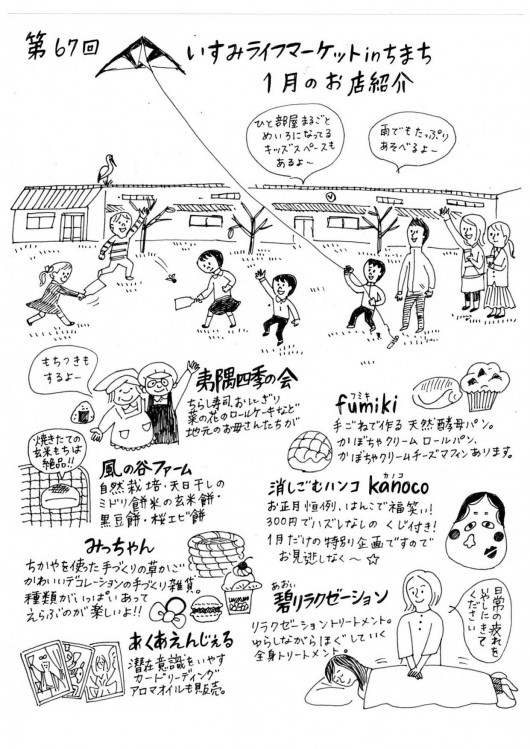 第67回
いすみライフマーケットinちまち
1月のお店紹介
ひと部屋まるごと
めいろになってる
キッズスペースも
あるよ～
雨でもたっぷり
あそべるよ～
もちつきも
するよ～
夷隅四季の会
ちらし寿司、おにぎり
菜の花のロールケーキなど
地元のお母さんたちが
フミキ
fumiki
手ごねで作る 天然酵母パン。
かぼちゃクリーム ロールパン、
かぼちゃクリームチーズマフィンあります。
焼きたての
玄米もちは
絶品!!
風の谷ファーム
自然栽培・天日干しの
ミドリ餅米の玄米餅・
黒豆餅・桜エビ餅
カノコ
消しごむハンコ kanoco
お正月恒例、はんこで福笑い!
300円でハズレなしの くじ付き!
1月だけの特別企画ですので
お見逃しなく～☆
みっちゃん
ちがやを使った手づくりの草かご
かわいいデコレーションの手づくり雑貨。
種類がいっぱいあって
えらぶのが楽しいよ!!
あおい
碧リラクゼーション
リラクゼーショントリートメント。
ゆらしながらほぐしていく
全身トリートメント。
日常の疲れを
いやしにきて
ください
あくあえんじぇる
潜在意識をいやす
カードリーディング
アロマオイルも販売。